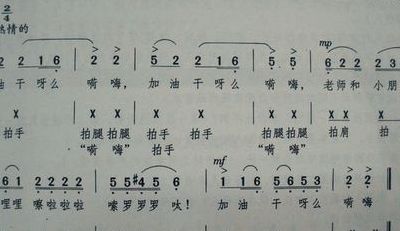 2/4
热情的
mp
2 2 1 6 2 2 5 2 2 1 6 5 5 6 2 2 2 3
油 干 呀么 嗬 嗨, 加 油 干 呀么 嗬 嗨, 老师和 小朋
x x x x x x x x x x x x
拍手 拍腿 拍腿 拍手 拍手 拍腿 拍腿 拍肩 拍
“嗬 嗨” 拍手 “嗬 嗨”
mf
1 6 2 2 2 2 5 5 #4 5 6 1 1 6 5 6 5 3 2 2
哩哩 嚓啦啦啦 嗦罗罗罗 呔! 加 油 干 呀么 嗬嗨